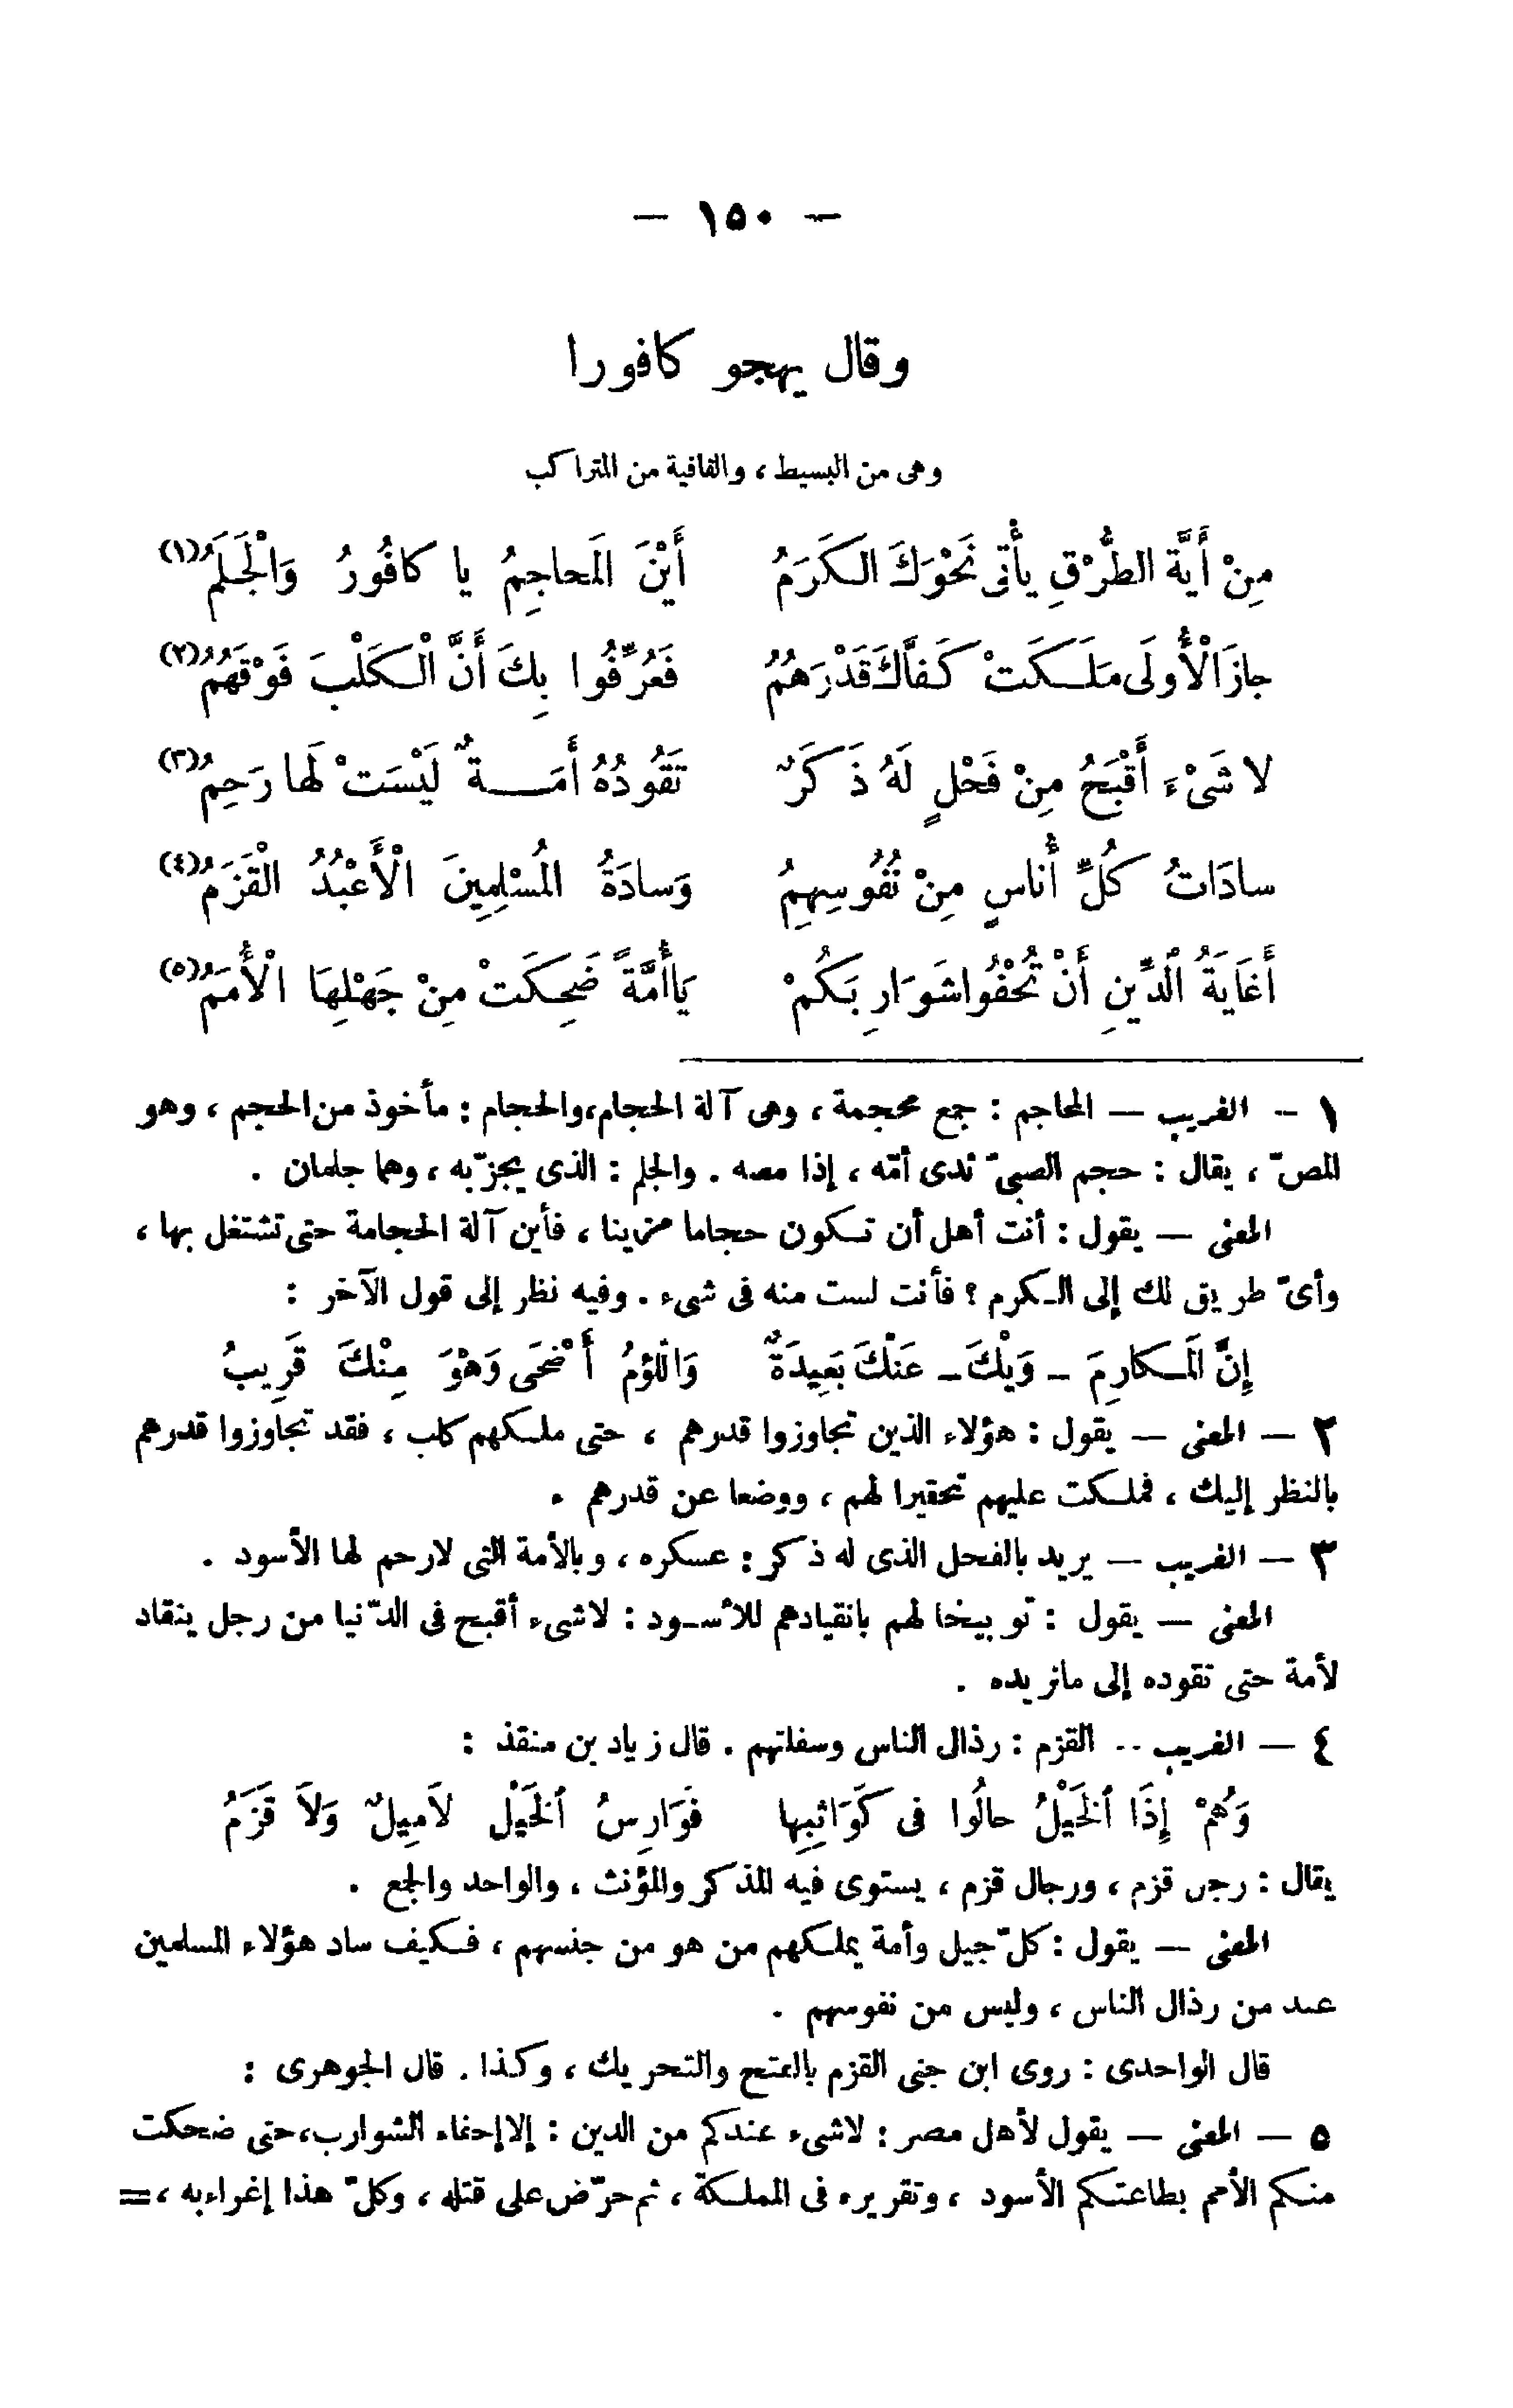 — ١٥٠ —
وقال يهجو كافورا
وهى من البسيط ، والقافية من المتراكب
مِنْ أَيَّةِ الطُّرْقِ يأْتى نَحْوَكَ الكَرَمُ أَيْنَ المَحاجِمُ يا كافُورُ وَالْجَلَمُ(١)
جازَ الْأُولَى مَلَكَتْ كَفاَّكَ قَدْرَهُمُ فَعُرِّفُوا بِكَ أَنَّ الْكَلْبَ فَوْقَهُمُ(٢)
لا شَىْءَ أَقْبَحُ مِنْ فَحْلٍ لَهُ ذَكَرٌ تَقُودُهُ أَمَةٌ لَيْسَتْ لَها رَحِمُ(٣)
سادَاتُ كُلِّ أُناسٍ مِنْ نُفُوسِهِمُ وَسادَةُ المُسْلِمِينَ الْأَعْبُدُ الْقَزَمُ(٤)
أَغَايَةُ الدِّينِ أَنْ تُحْفُوا شَوَارِبَكُمْ يَاأُمَّةً ضَحِكَتْ مِنْ جَهْلِهَا الْأُمَمُ(٥)
١ - الغريب — المحاجم : جمع محجمة ، وهى آلة الحجام،والحجام : مأخوذ من الحجم ، وهو
المصّ ، يقال : حجم الصبىّ ثدى أمّه ، إذا مصه . والجلم : الذى يجزّ به ، وهما جلمان .
المعنى — يقول : أنت أهل أن تكون حجاما مزينا ، فأين آلة الحجامة حتى تشتغل بها ،
وأىّ طريق لك إلى الكرم ؟ فأنت لست منه فى شىء . وفيه نظر إلى قول الآخر :
إِنَّ المَكارِمَ – وَيْكَ – عَنْكَ بَعِيدَةٌ وَاللُّؤمُ أَضْحَى وَهْوَ مِنْكَ قَرِيبُ
٢ — المعنى — يقول : هؤلاء الذين تجاوزوا قدرهم ، حتى ملكهم كلب ، فقد تجاوزوا قدرهم
بالنظر إليك ، فملكت عليهم تحقيرا لهم ، ووضعا عن قدرهم .
٣ — الغريب — يريد بالفحل الذى له ذكر : عسكره ، وبالأمة التى لارحم لها الأسود .
المعنى — يقول : توبيخا لهم بانقيادهم للأسود : لاشىء أقبح فى الدّنيا من رجل ينقاد
لأمة حتى تقوده إلى ماتريده .
٤ — الغريب -- القزم : رذال الناس وسفلتهم . قال زياد بن منقذ :
وَهُمْ إِذَا الْخَيْلُ حالُوا فى كَوَاثِبِها فَوَارِسُ الْخَيْل لاَمِيلٌ وَلاَ قَزَمُ
يقال : رجل قزم ، ورجال قزم ، يستوى فيه المذكر والمؤنث ، والواحد والجمع .
المعنى — يقول : كلّ جيل وأمة يملكهم من هو من جنسهم ، فكيف ساد هؤلاء المسلمين
عبد من رذال الناس ، وليس من نفوسهم .
قال الواحدى : روى ابن جنى القزم بالفتح والتحريك ، وكذا . قال الجوهرى :
٥ — المعنى — يقول لأهل مصر : لاشىء عندكم من الدين : إلا إحفاء الشوارب،حتى ضحكت
منكم الأمم بطاعتكم الأسود ، وتقريره فى المملكة ، ثم حرّض على قتله ، وكلّ هذا إغراء به ، =